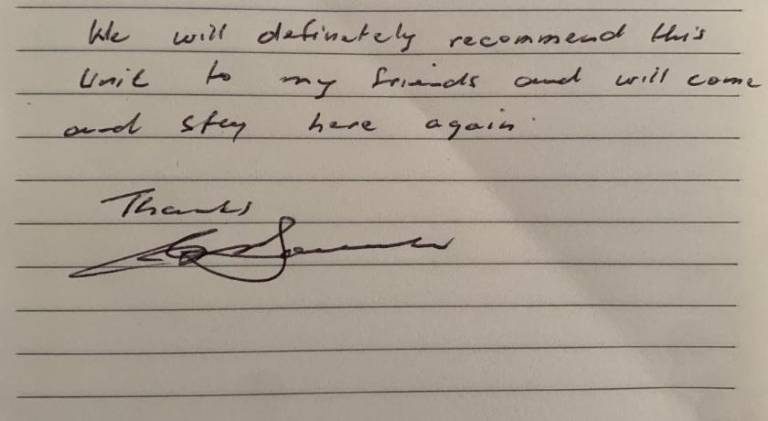 We will definately recommend this
Unit to my friends and will come
and stay here again.
Thanks